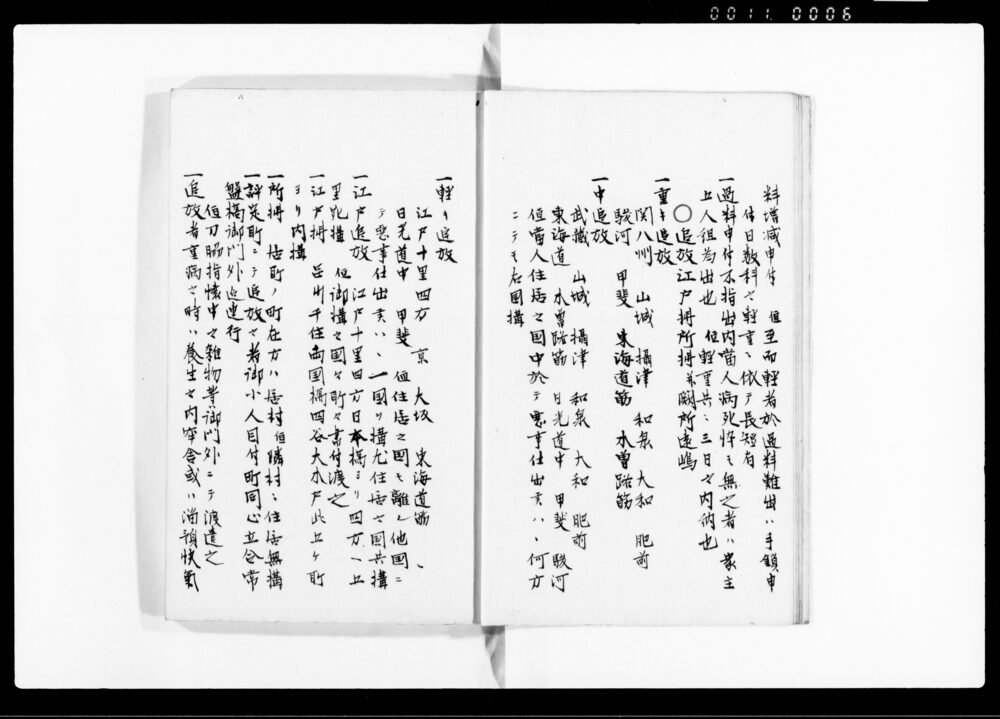 0011 0006
料増減申付 但至而軽者於過料難出ハ手鎖申
付日数科之軽重ニ依テ長短有
一過料申付不指出内當人病死忰モ無之者ハ家主
五人組為出也 但軽重共ニ三日之内納也
〇追放江戸拂所拂并闕所遠嶋
一重キ追放
関八州 山城 攝津 和泉 大和 肥前
駿河 甲斐 東海道筋 木曽路筋
一中追放
武蔵 山城 攝津 和泉 大和 肥前
東海道 木曽路筋 日光道中 甲斐 駿河
但當人住居之国中於テ悪事仕出候ハヽ何方
ニテモ右国搆
一軽キ追放
江戸十里四方 京 大坂 東海道筋
日光道中 甲斐 但住居之国ヲ離レ他国ニ
テ悪事仕出候ハヽ一国ヲ搆尤住居之国共搆
一江戸追放 江戸十里四方日本橋ヨリ四方ヘ五
里宛搆 但御搆之国々所々書付渡之
一江戸拂 品川千住両国橋四谷大木戸此五ヶ所
ヨリ内搆
一所拂 居町ノ町在方ハ居村但隣村ニ住居無搆
一評定所ニテ追放之者御小人目付町同心立合常
盤橋御門外迄連行
但刀脇指懐中之雑物等御門外ニテ渡遣之
一追放者重病之時ハ養生之内牢舎或ハ溜預快氣